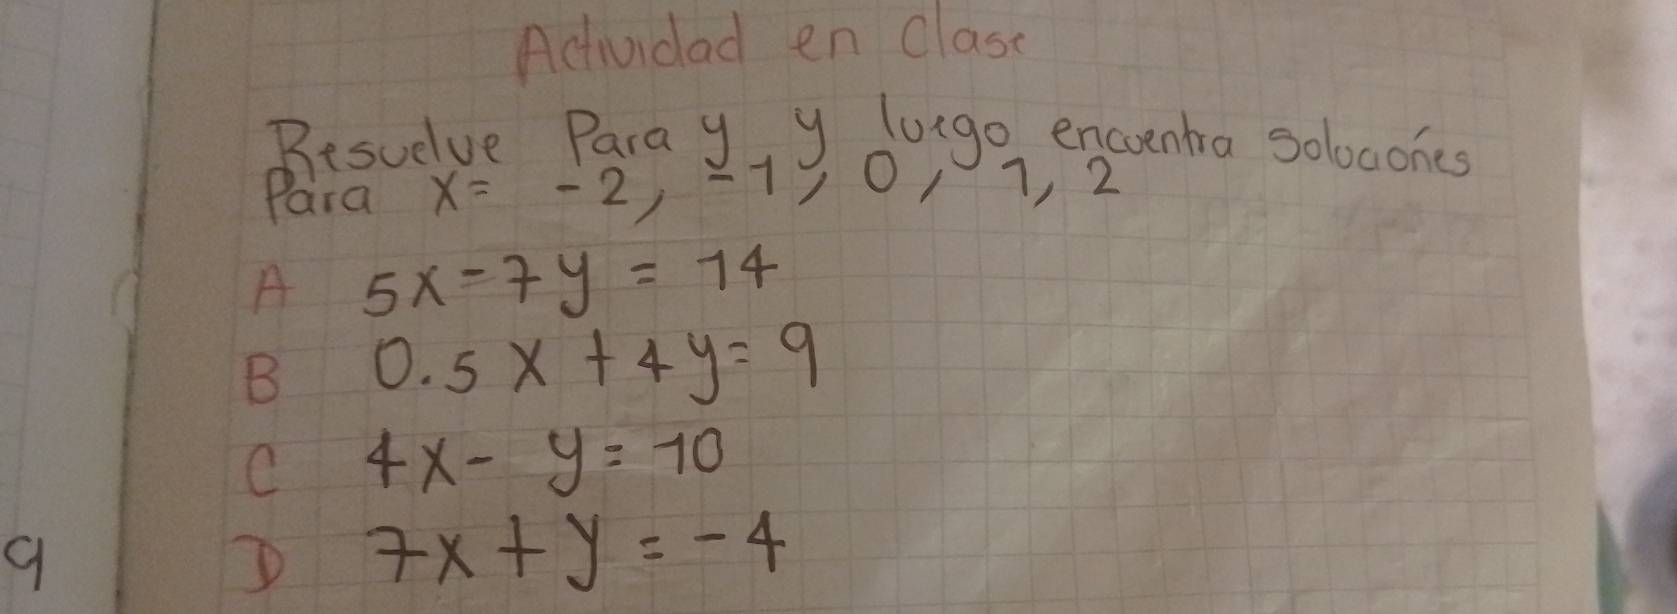 Actividad en clase
Resuelve Para y, y luego encuentra soluciones
Para x = -2, -1, 0, 1, 2
A 5x - 7y = 14
B 0.5x + 4y = 9
C 4x - y = 10
D 7x + y = -4
9